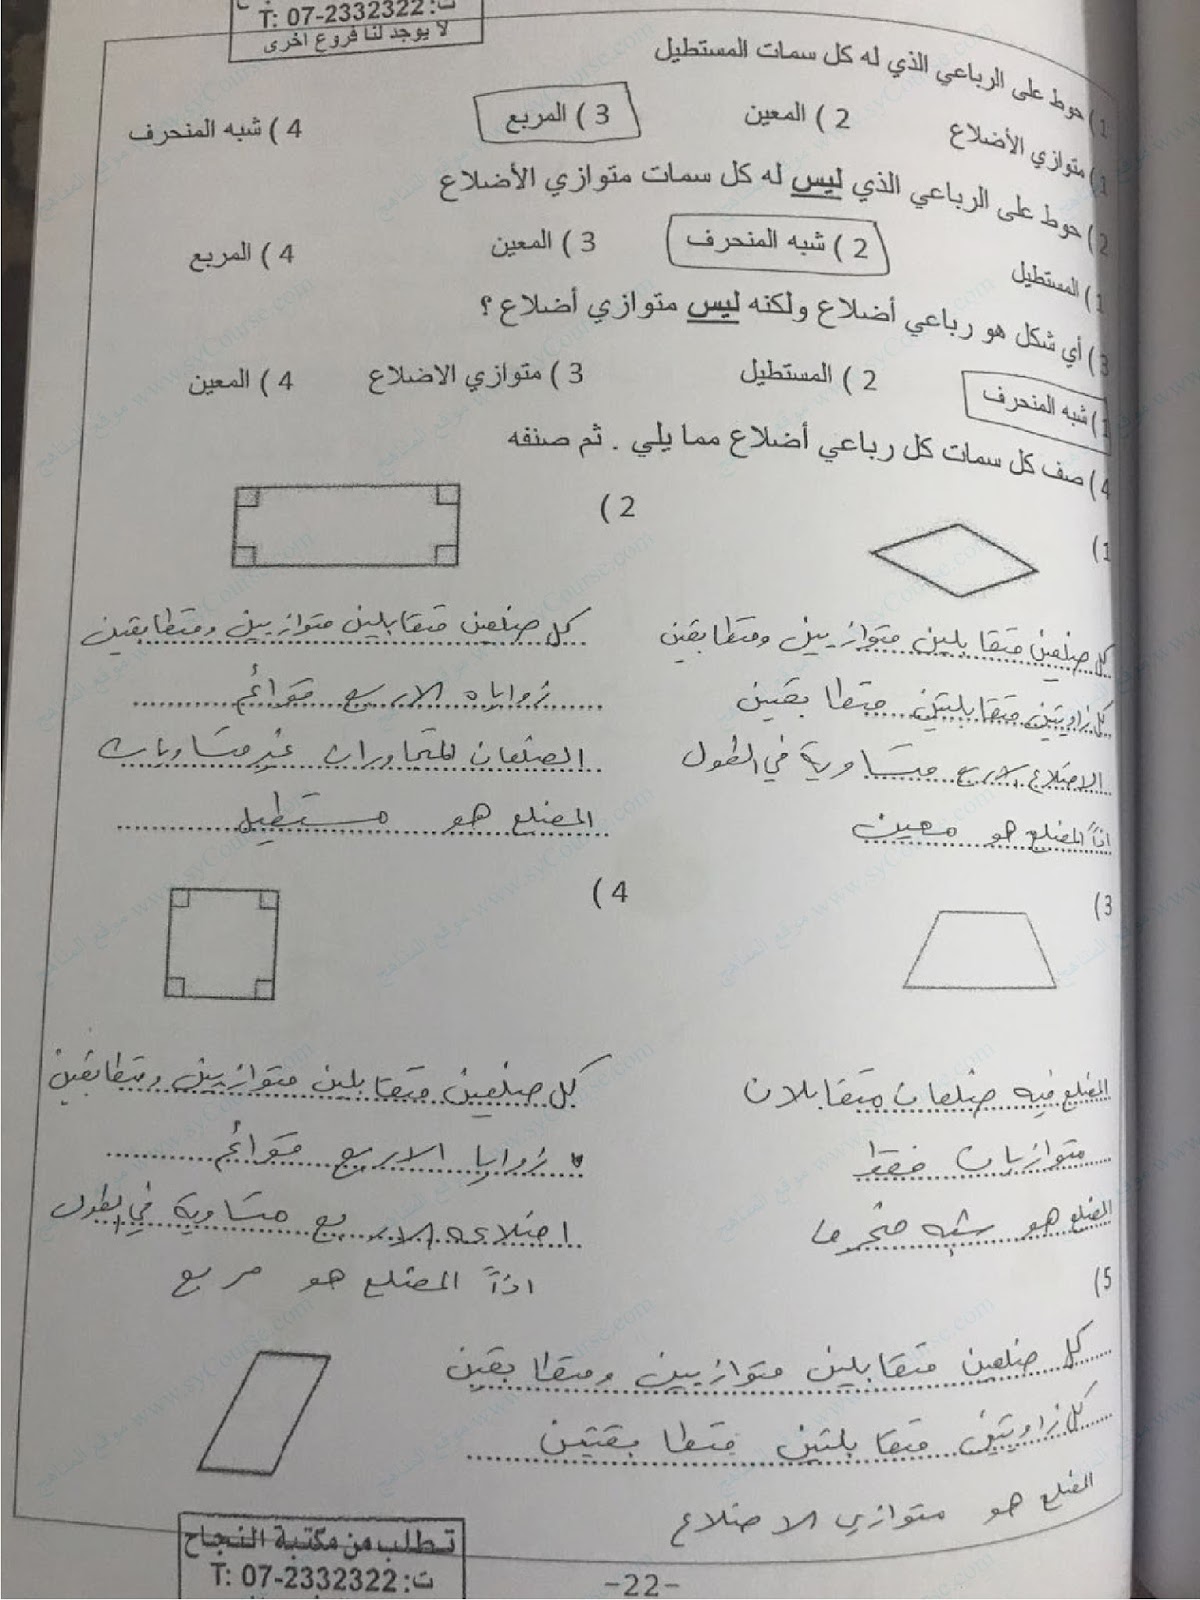 ت: 07-2332322 :T
لا يوجد لنا فروع اخرى
1 ) حوط على الرباعي الذي له كل سمات المستطيل
1 ) متوازي الأضلاع 2 ) المعين 3 ) المربع 4 ) شبه المنحرف
2 ) حوط على الرباعي الذي ليس له كل سمات متوازي الأضلاع
1 ) المستطيل 2 ) شبه المنحرف 3 ) المعين 4 ) المربع
3 ) أي شكل هو رباعي أضلاع ولكنه ليس متوازي أضلاع ؟
1 ) شبه المنحرف 2 ) المستطيل 3 ) متوازي الاضلاع 4 ) المعين
4 ) صف كل سمات كل رباعي أضلاع مما يلي . ثم صنفه
1 )
كل ضلعين متقابلين متوازيين ومتطابقين
كل زاويتين متقابلتين متطابقتين
الاضلاع الاربع متساوية في الطول
اذاً المضلع هو معين
2 )
كل ضلعين متقابلين متوازيين ومتطابقين
زواياه الاربع قوائم
الضلعان المتجاوران غير متساويان
المضلع هو مستطيل
3 )
المضلع فيه ضلعان متقابلان
متوازيان فقط
المضلع هو شبه منحرف
4 )
كل ضلعين متقابلين متوازيين ومتطابقين
زوايا الاربع قوائم
اضلاعه الاربع متساوية في الطول
اذاً المضلع هو مربع
5 )
كل ضلعين متقابلين متوازيين ومتطابقين
كل زاويتين متقابلتين متطابقتين
المضلع هو متوازي الاضلاع
تطلب من مكتبة النجاح
ت: 07-2332322 :T
-22-
موقع المناهج www.syCourse.com